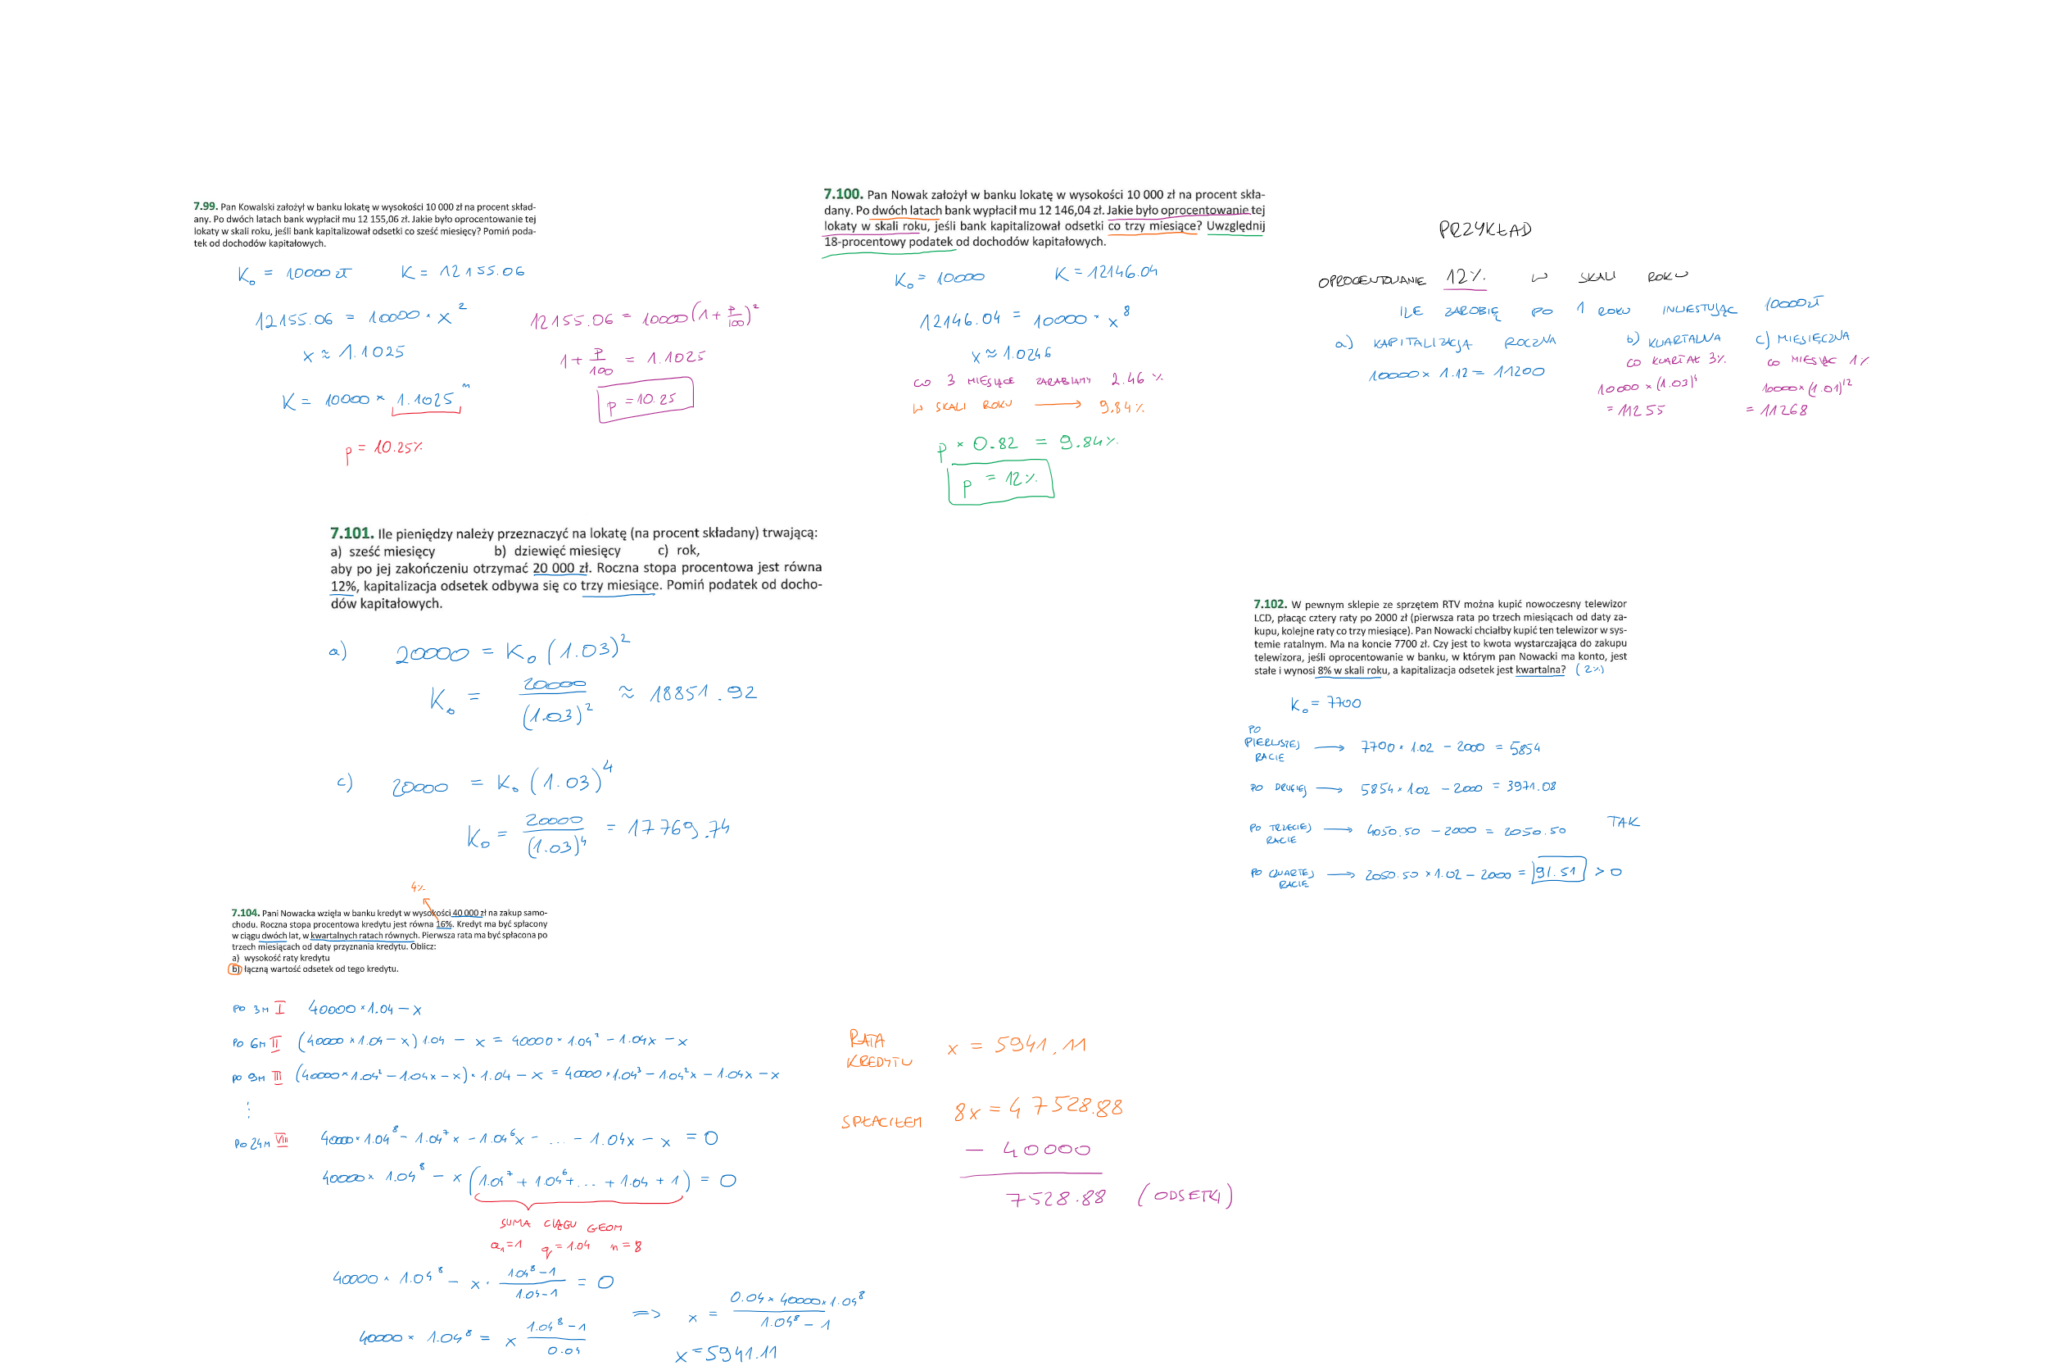 7.99. Pan Kowalski założył w banku lokatę w wysokości 10 000 zł na procent skład-
any. Po dwóch latach bank wypłacił mu 12 155,06 zł. Jakie było oprocentowanie tej
lokaty w skali roku, jeśli bank kapitalizował odsetki co sześć miesięcy? Pomiń poda-
tek od dochodów kapitałowych.
K₀ = 10000 zł K = 12155.06
12155.06 = 10000 · x²
x ≈ 1.1025
K = 10000 × 1.1025ᵐ
p = 10.25%
12155.06 = 10000(1+p/100)²
1 + p/100 = 1.1025
p = 10.25
7.100. Pan Nowak założył w banku lokatę w wysokości 10 000 zł na procent skła-
dany. Po dwóch latach bank wypłacił mu 12 146,04 zł. Jakie było oprocentowanie tej
lokaty w skali roku, jeśli bank kapitalizował odsetki co trzy miesiące? Uwzględnij
18-procentowy podatek od dochodów kapitałowych.
K₀ = 10000 K = 12146.04
12146.04 = 10000 · x⁸
x ≈ 1.0246
CO 3 MIESIĄCE ZARABIAMY 2.46 %
W SKALI ROKU → 9.84%
p × 0.82 = 9.84%
p = 12%
PRZYKŁAD
OPROCENTOWANIE 12% W SKALI ROKU
ILE ZAROBIĘ PO 1 ROKU INWESTUJĄC 10000zł
a) KAPITALIZACJA ROCZNA b) KWARTALNA c) MIESIĘCZNA
CO KWARTAŁ 3% CO MIESIĄC 1%
10000 × 1.12 = 11200 10000 × (1.03)⁴ 10000 × (1.01)¹²
= 11255 = 11268
7.101. Ile pieniędzy należy przeznaczyć na lokatę (na procent składany) trwającą:
a) sześć miesięcy b) dziewięć miesięcy c) rok,
aby po jej zakończeniu otrzymać 20 000 zł. Roczna stopa procentowa jest równa
12%, kapitalizacja odsetek odbywa się co trzy miesiące. Pomiń podatek od docho-
dów kapitałowych.
a) 20000 = K₀ (1.03)²
K₀ = 20000/(1.03)² ≈ 18851.92
c) 20000 = K₀ (1.03)⁴
K₀ = 20000/(1.03)⁴ = 17769.74
7.102. W pewnym sklepie ze sprzętem RTV można kupić nowoczesny telewizor
LCD, płacąc cztery raty po 2000 zł (pierwsza rata po trzech miesiącach od daty za-
kupu, kolejne raty co trzy miesiące). Pan Nowacki chciałby kupić ten telewizor w sys-
temie ratalnym. Ma na koncie 7700 zł. Czy jest to kwota wystarczająca do zakupu
telewizora, jeśli oprocentowanie w banku, w którym pan Nowacki ma konto, jest
stałe i wynosi 8% w skali roku, a kapitalizacja odsetek jest kwartalna? (2%)
K₀ = 7700
PO PIERWSZEJ RACIE → 7700 · 1.02 − 2000 = 5854
PO DRUGIEJ → 5854 × 1.02 − 2000 = 3971.08
PO TRZECIEJ RACIE → 4050.50 − 2000 = 2050.50 TAK
PO CZWARTEJ RACIE → 2050.50 × 1.02 − 2000 = 91.51 > 0
4%
7.104. Pani Nowacka wzięła w banku kredyt w wysokości 40 000 zł na zakup samo-
chodu. Roczna stopa procentowa kredytu jest równa 16%. Kredyt ma być spłacony
w ciągu dwóch lat, w kwartalnych ratach równych. Pierwsza rata ma być spłacona po
trzech miesiącach od daty przyznania kredytu. Oblicz:
a) wysokość raty kredytu
b) łączną wartość odsetek od tego kredytu.
PO 3M I 40000 × 1.04 − x
PO 6M II (40000 × 1.04 − x) 1.04 − x = 40000 · 1.04² − 1.04x − x
PO 9M III (40000 × 1.04² − 1.04x − x) · 1.04 − x = 40000 × 1.04³ − 1.04²x − 1.04x − x
⋮
PO 24M VIII 40000 × 1.04⁸ − 1.04⁷x − 1.04⁶x − ... − 1.04x − x = 0
40000 × 1.04⁸ − x (1.04⁷ + 1.04⁶ + ... + 1.04 + 1) = 0
SUMA CIĄGU GEOM
a₁ = 1 q = 1.04 n = 8
40000 × 1.04⁸ − x · (1.04⁸ − 1)/(1.04 − 1) = 0
40000 × 1.04⁸ = x (1.04⁸ − 1)/0.04
⇒ x = (0.04 × 40000 × 1.04⁸)/(1.04⁸ − 1)
x = 5941.11
RATA KREDYTU x = 5941.11
SPŁACIŁEM 8x = 47528.88
− 40000
7528.88 (ODSETKI)